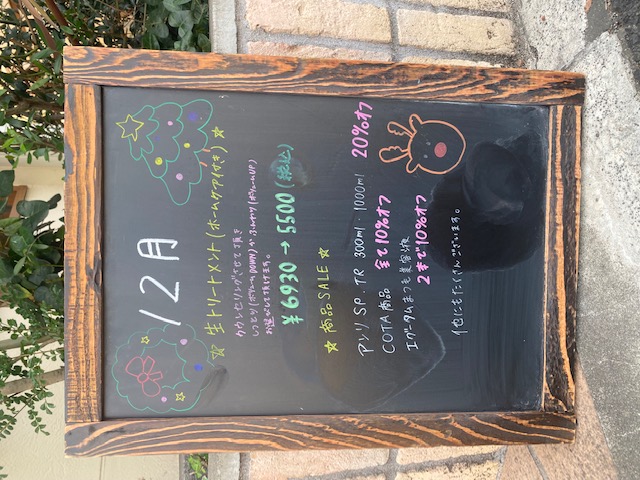 12月
☆ 生トリートメント(ホームケア付き)☆
カウンセリングさせて頂き
しっとり(ボリュームDOWN) か ふんわり(ボリュームUP)
お選びして頂けます。
¥6930 → 5500 (税込)
☆ 商品SALE ☆
アンリSP・TR 300ml・1000ml 20%オフ
COTA商品 全て10%オフ
エグータムまつも美容液
2本で10%オフ
他にもたくさんございます。